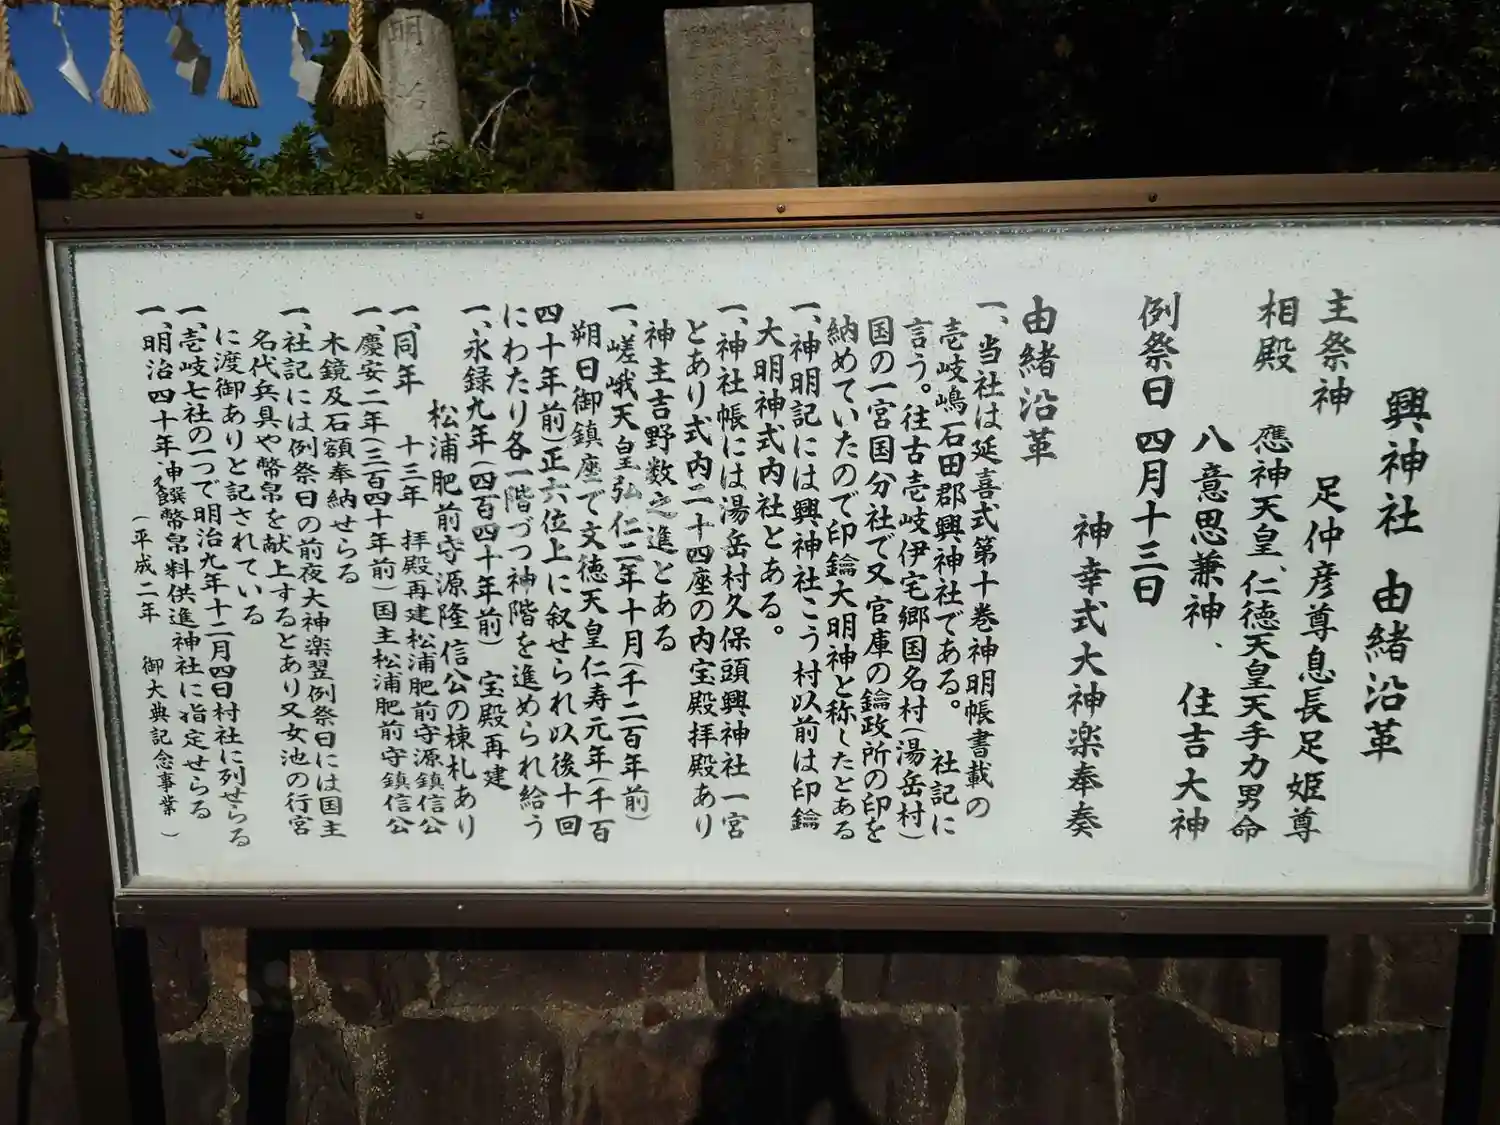 興神社 由緒沿革
主祭神 足仲彦尊息長足姫尊
相殿 應神天皇、仁徳天皇天手力男命
八意思兼神、住吉大神
例祭日 四月十三日
神幸式大神楽奉奏
由緒沿革
一、当社は延喜式第十巻神明帳書載の
壱岐嶋石田郡興神社である。 社記に
言う。往古壱岐伊宅郷国名村(湯岳村)
国の一宮国分社で又官庫の鑰政所の印を
納めていたので印鑰大明神と称したとある
一、神明記には興神社こう村以前は印鑰
大明神式内社とある。
一、神社帳には湯岳村久保頭興神社一宮
とあり式内二十四座の内宝殿拝殿あり
神主吉野数之進とある
一、嵯峨天皇弘仁二年十月(千二百年前)
朔日御鎮座で文徳天皇仁寿元年(千百
四十年前)正六位上に叙せられ以後十回
にわたり各一階づつ神階を進められ給う
一、永録九年(四百四十年前) 宝殿再建
松浦肥前守源隆信公の棟札あり
一、同年 十三年 拝殿再建松浦肥前守源鎮信公
一、慶安二年(三百四十年前)国主松浦肥前守鎮信公
木鏡及石額奉納せらる
一、社記には例祭日の前夜大神楽翌例祭日には国主
名代兵具や幣帛を献上するとあり又女池の行宮
に渡御ありと記されている
一、壱岐七社の一つで明治九年十二月四日村社に列せらる
一、明治四十年神饌幣帛料供進神社に指定せらる
(平成二年 御大典記念事業)
明治